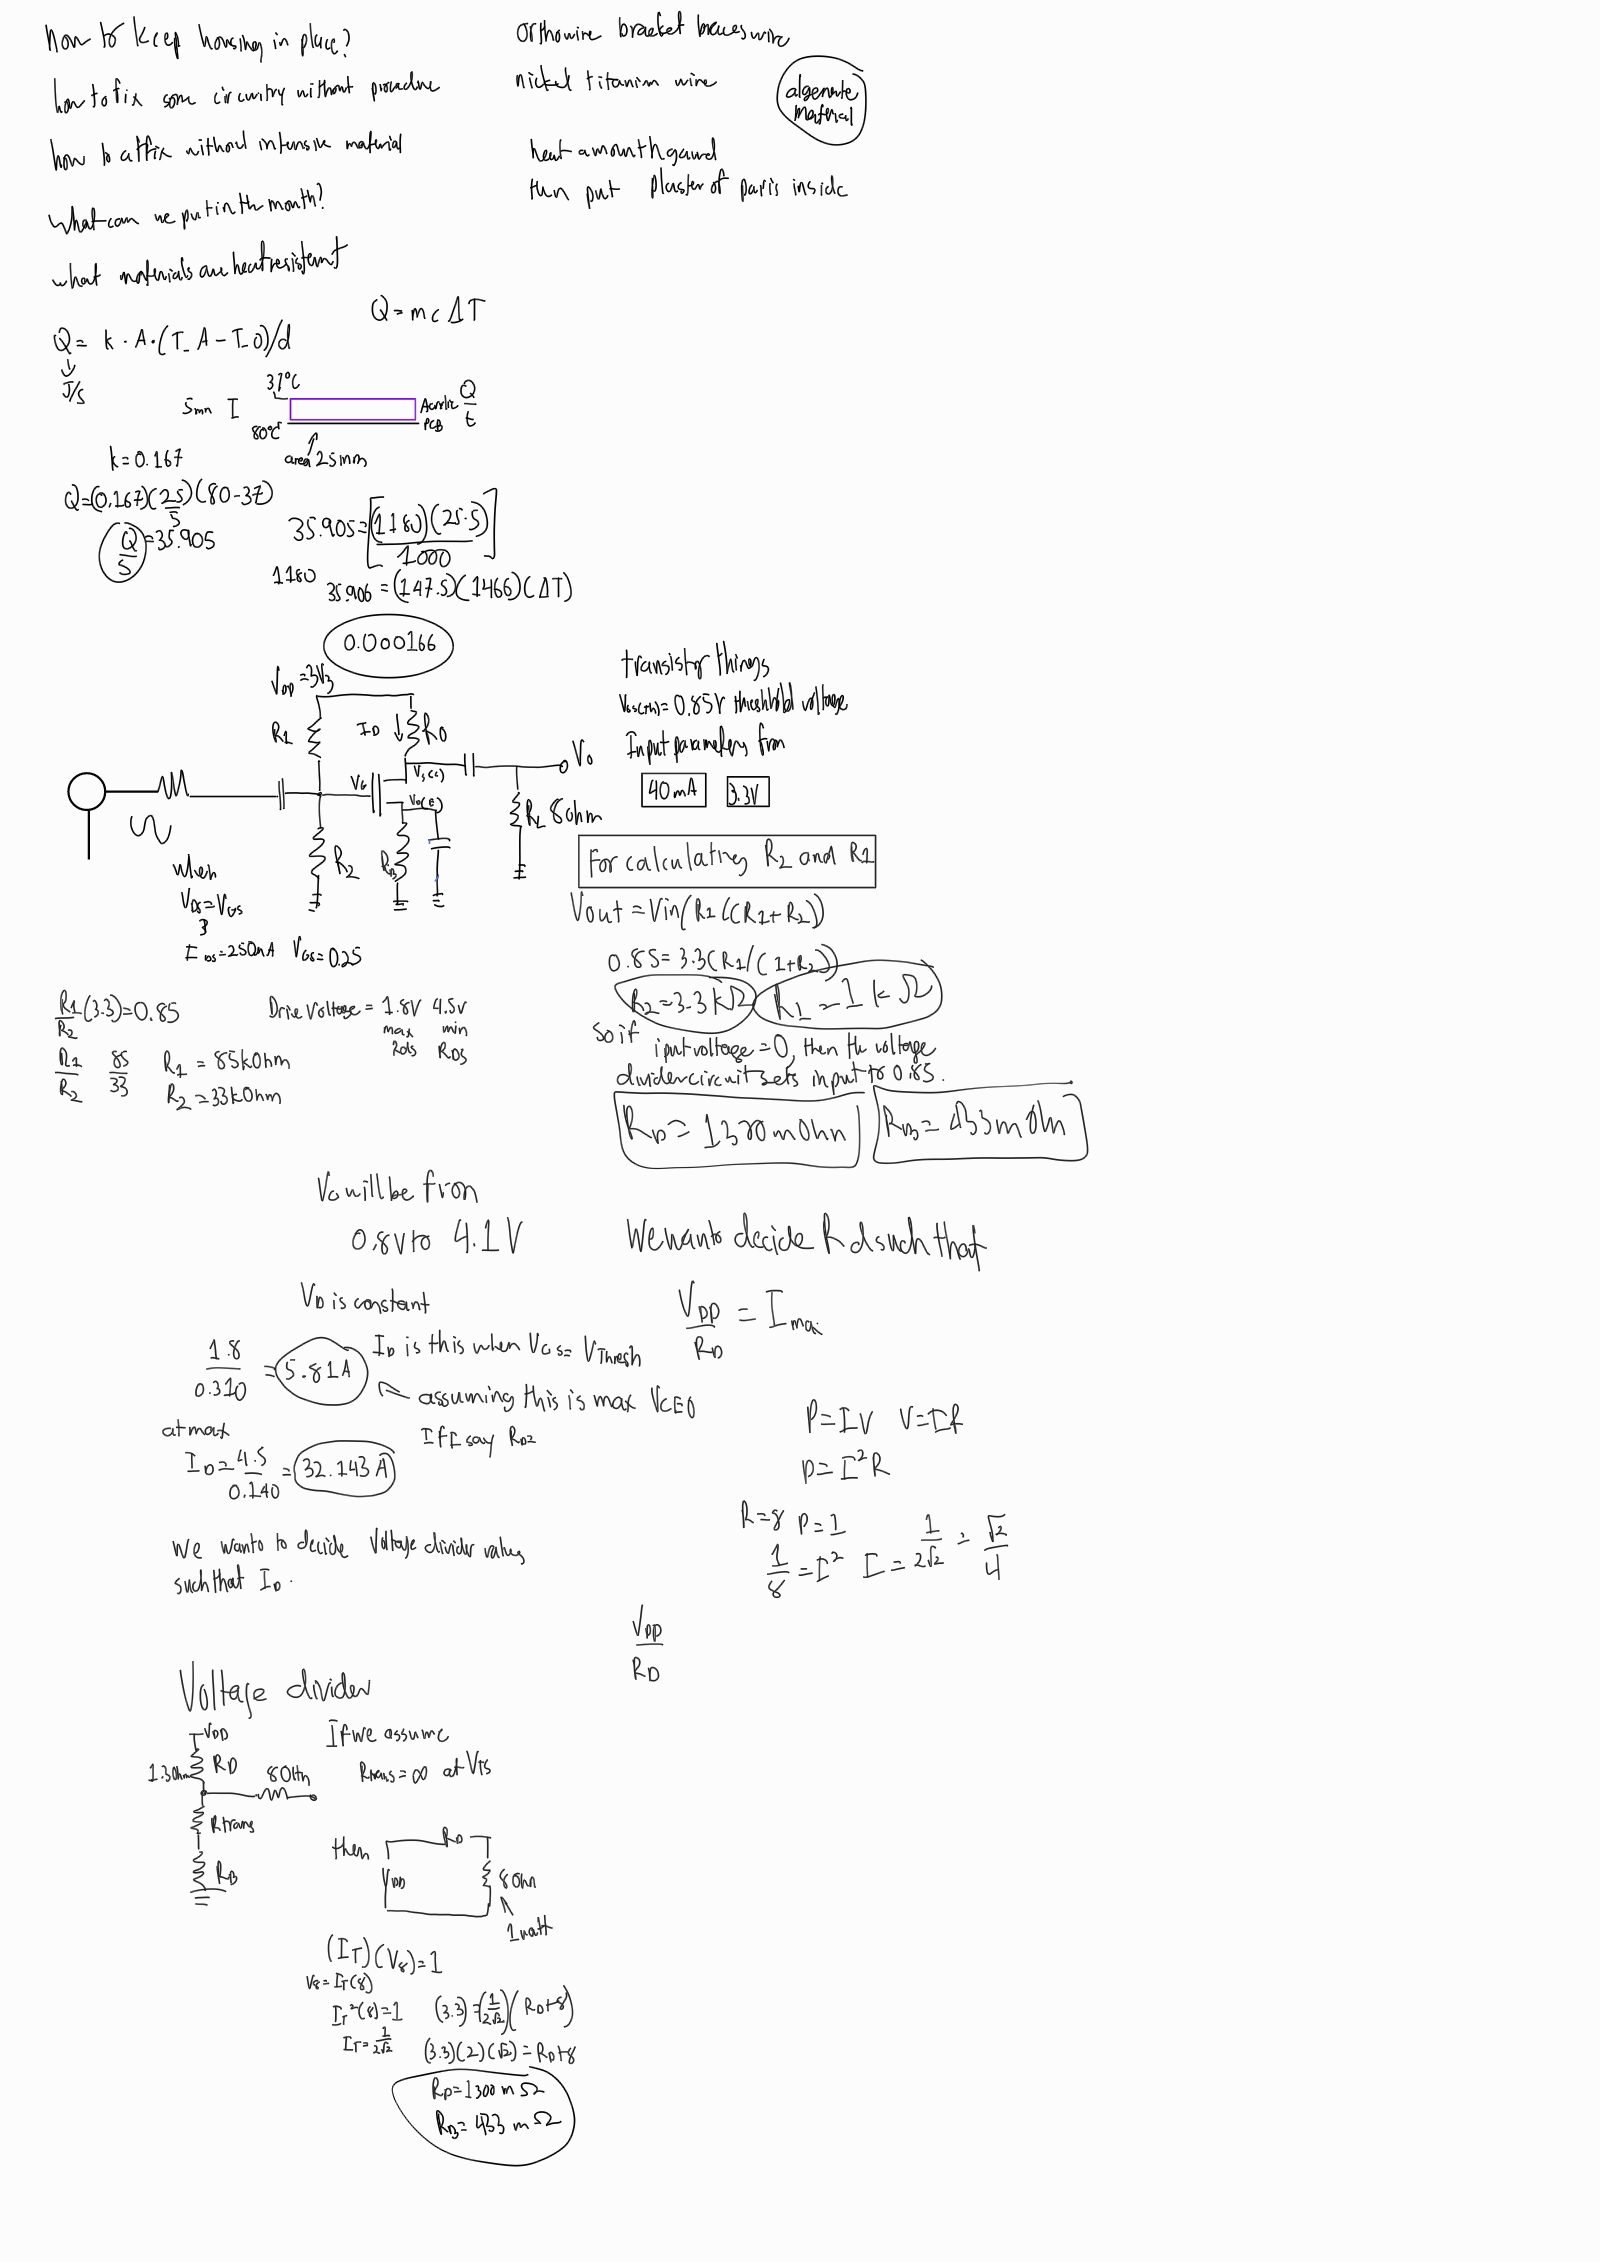 how to keep housing in place?
how to fix some circuitry without procedure
how to affix without intensive material
What can we put in the mouth?
what materials are heat resistent
Orthowire bracket braces wire
nickel titanium wire
algenate
material
heat a mouthgaurd
then put plaster of paris inside
Q = mcΔT
Q = k · A · (T_A - T_0)/d
J/s
37°C
5mm I
Acrylic Q/t
80°C
PCB
area 25mm
k = 0.167
Q = (0.167)(25/5)(80-37)
Q/S = 35.905
35.905 = [(1180)(25·5)/1000]
1180
35.906 = (147.5)(1466)(ΔT)
0.000166
VDD = 3V3
R1
ID
RD
VG
Vo
RL 8ohm
R2
RB
when
VDS = VGS
IDS = 250uA VGS = 0.25
transistor things
VGS(th) = 0.85V threshhold voltage
Input parameters from
40mA 3.3V
For calculating R2 and R1
Vout = Vin(R1/(R1+R2))
0.85 = 3.3(R1/(1+R2))
R2 = 3.3kΩ R1 = 1kΩ
So if iput voltage = 0, then the voltage
divider circuit sets input to 0.85.
RD = 1300mOhm RB = 433mOhm
R1/R2 (3.3) = 0.85
R1/R2 85/33 R1 = 85kOhm
R2 = 33kOhm
Drive Voltage = 1.8V 4.5v
max min
Rds RDS
VG will be from
0.8V to 4.1V
VD is constant
1.8/0.310 = 5.81A
ID is this when VGS = VThresh
assuming this is max VCEO
If I say RD2
at max
ID = 4.5/0.140 = 32.143A
We want to decide Voltage divider values
such that ID.
We wanto decide Rd such that
VDD/RD = Imax
P=IV V=IR
P=I²R
R=8 P=1
1/8 = I² I = 1/2√2 = √2/4
VDD/RD
Voltage divider
VDD
1.3Ohm RD 8Ohm
Rtrans
RB
If we assume
Rtrans = ∞ at VTS
then
RD
VDD
8Ohm
1watt
(IT)(V8)=1
V8=IT(8)
IT²(8)=1 (3.3)=(1/2√2)(RD+8)
IT=1/2√2 (3.3)(2)(√2)=RD+8
RD=1300mΩ
RB=433mΩ